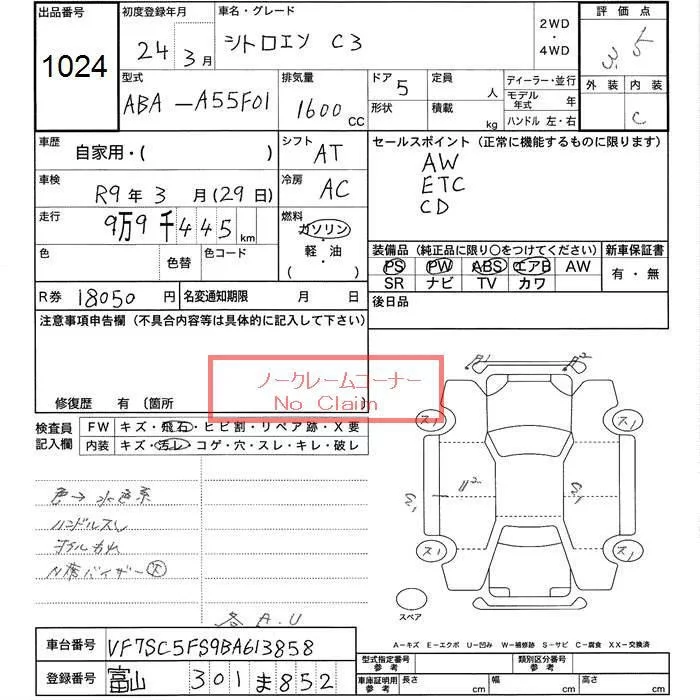 出品番号
1024
初度登録年月
24年3月
車名・グレード
シトロエン C3
2WD
・
4WD
評価点
3.5
外装 内装
C
型式
ABA-A55F01
排気量
1600 CC
ドア 5
形状
定員 人
積載 kg
ディーラー・並行
モデル年式 年
ハンドル 左・右
車歴
自家用・( )
シフト AT
車検
R9年3月(29日)
冷房 AC
走行
9万9千445km
燃料
ガソリン
軽・油
( )
色
色替
色コード
R券 18050円
名変通知期限 月 日
セールスポイント(正常に機能するものに限ります)
AW
ETC
CD
装備品(純正品に限り○をつけてください)
PS PW ABS エアB AW
SR ナビ TV カワ
新車保証書
有・無
後日品
注意事項申告欄(不具合内容等は具体的に記入して下さい)
ノークレームコーナー
No Claim
修復歴 有(箇所 )
検査員記入欄
FW キズ・飛石・ヒビ割・リペア跡・X要
内装 キズ・汚レ・コゲ・穴・スレ・キレ・破レ
色→水色系
ハンドルスレ
N席バイザー欠
各A.U
A1
A2
ス1
ス1
U2
ス1
ス1
スペア
A-キズ E-エクボ U-凹み W-補修跡 S-サビ C-腐食 XX-交換済
車台番号 VF7SC5FS9BA613858
登録番号 富山 301 ま 852
型式指定番号参考
類別区分番号参考
車庫証明用参考
長さ cm
幅 cm
高さ cm